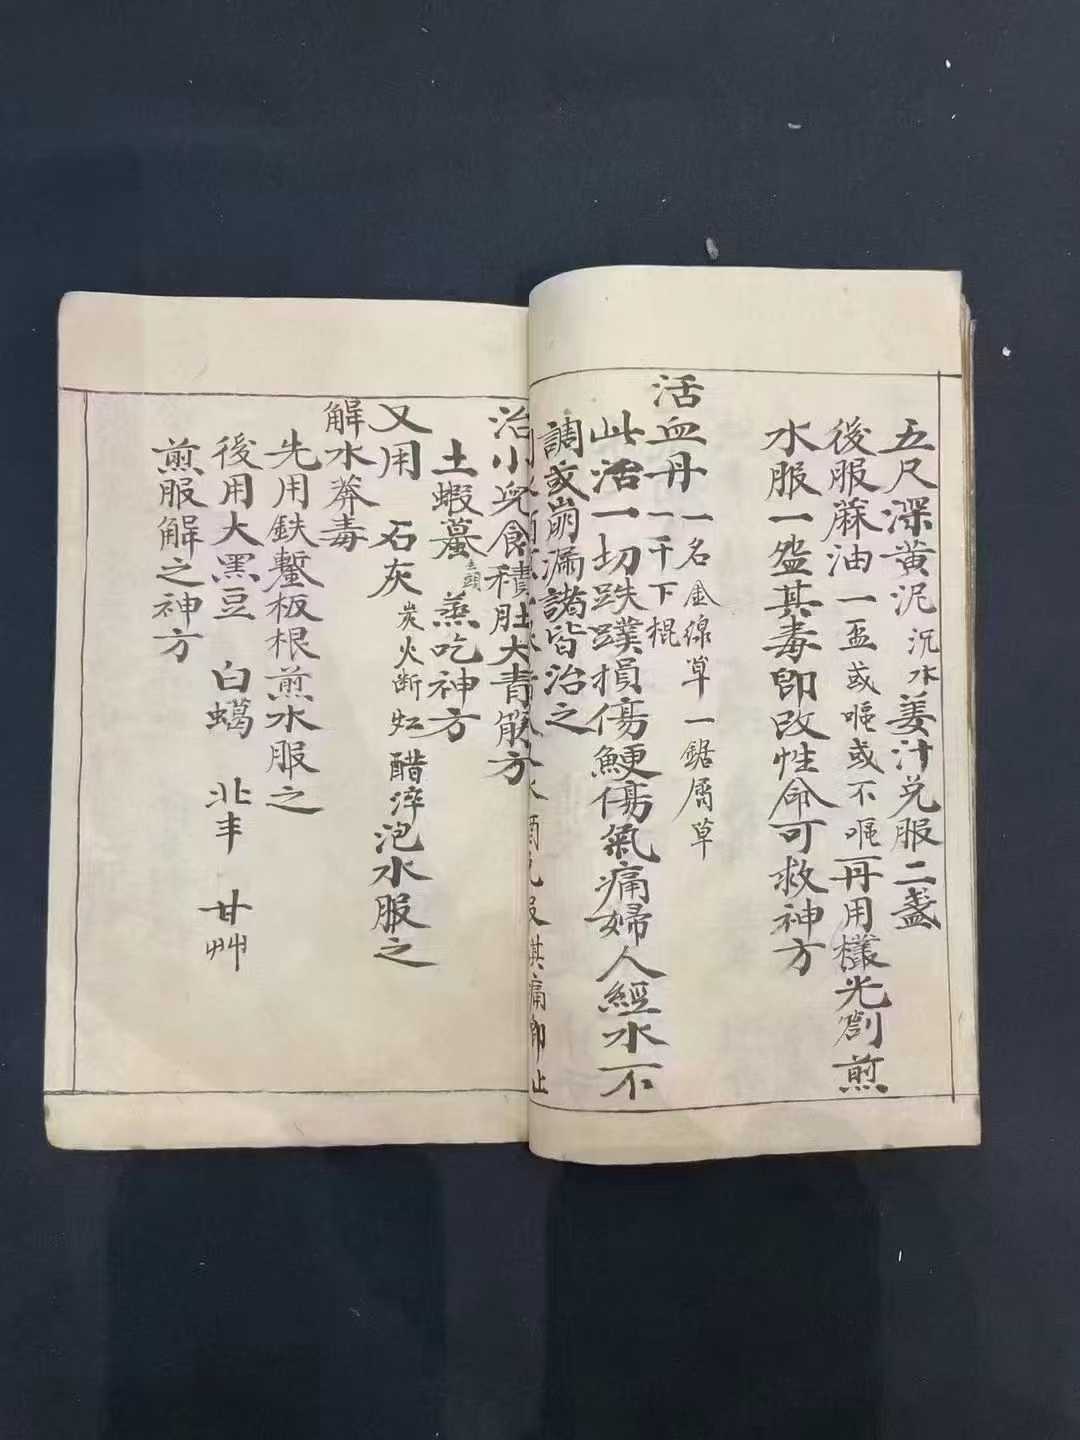 五尺深黄泥沉水姜汁兑服二盏
後服蔴油一盃或嘔或不嘔再用樣光劄煎
水服一盌其毒即改性命可救神方
活血丹一名金線草一鋸屑草
一千下棍
此活一切跌蹼損傷鯁傷氣痛婦人經水不
調或崩漏諸皆治之
酒兑服其痛即止
治小兒食積肚大青筋方
土蝦蟇去頭蒸吃神方
又用 石灰炭火断紅醋淬泡水服之
解水莽毒
先用鉄鏨板根煎水服之
後用大黑豆 白蠍 北芉 甘艸
煎服解之神方